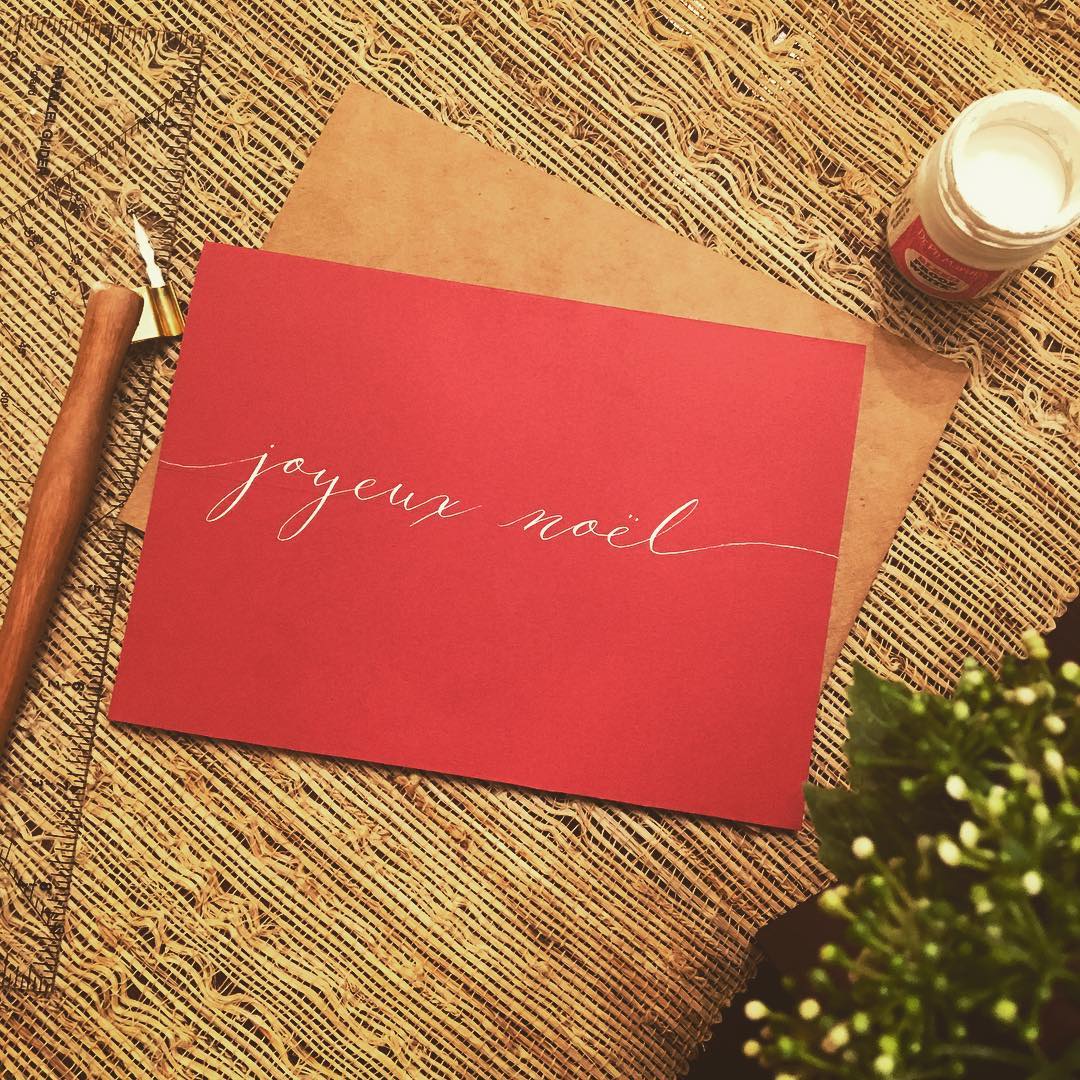 joyeux noël